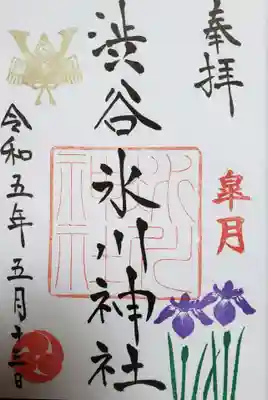 奉拝
皐月
渋谷氷川神社
氷川神社
令和五年五月十三日